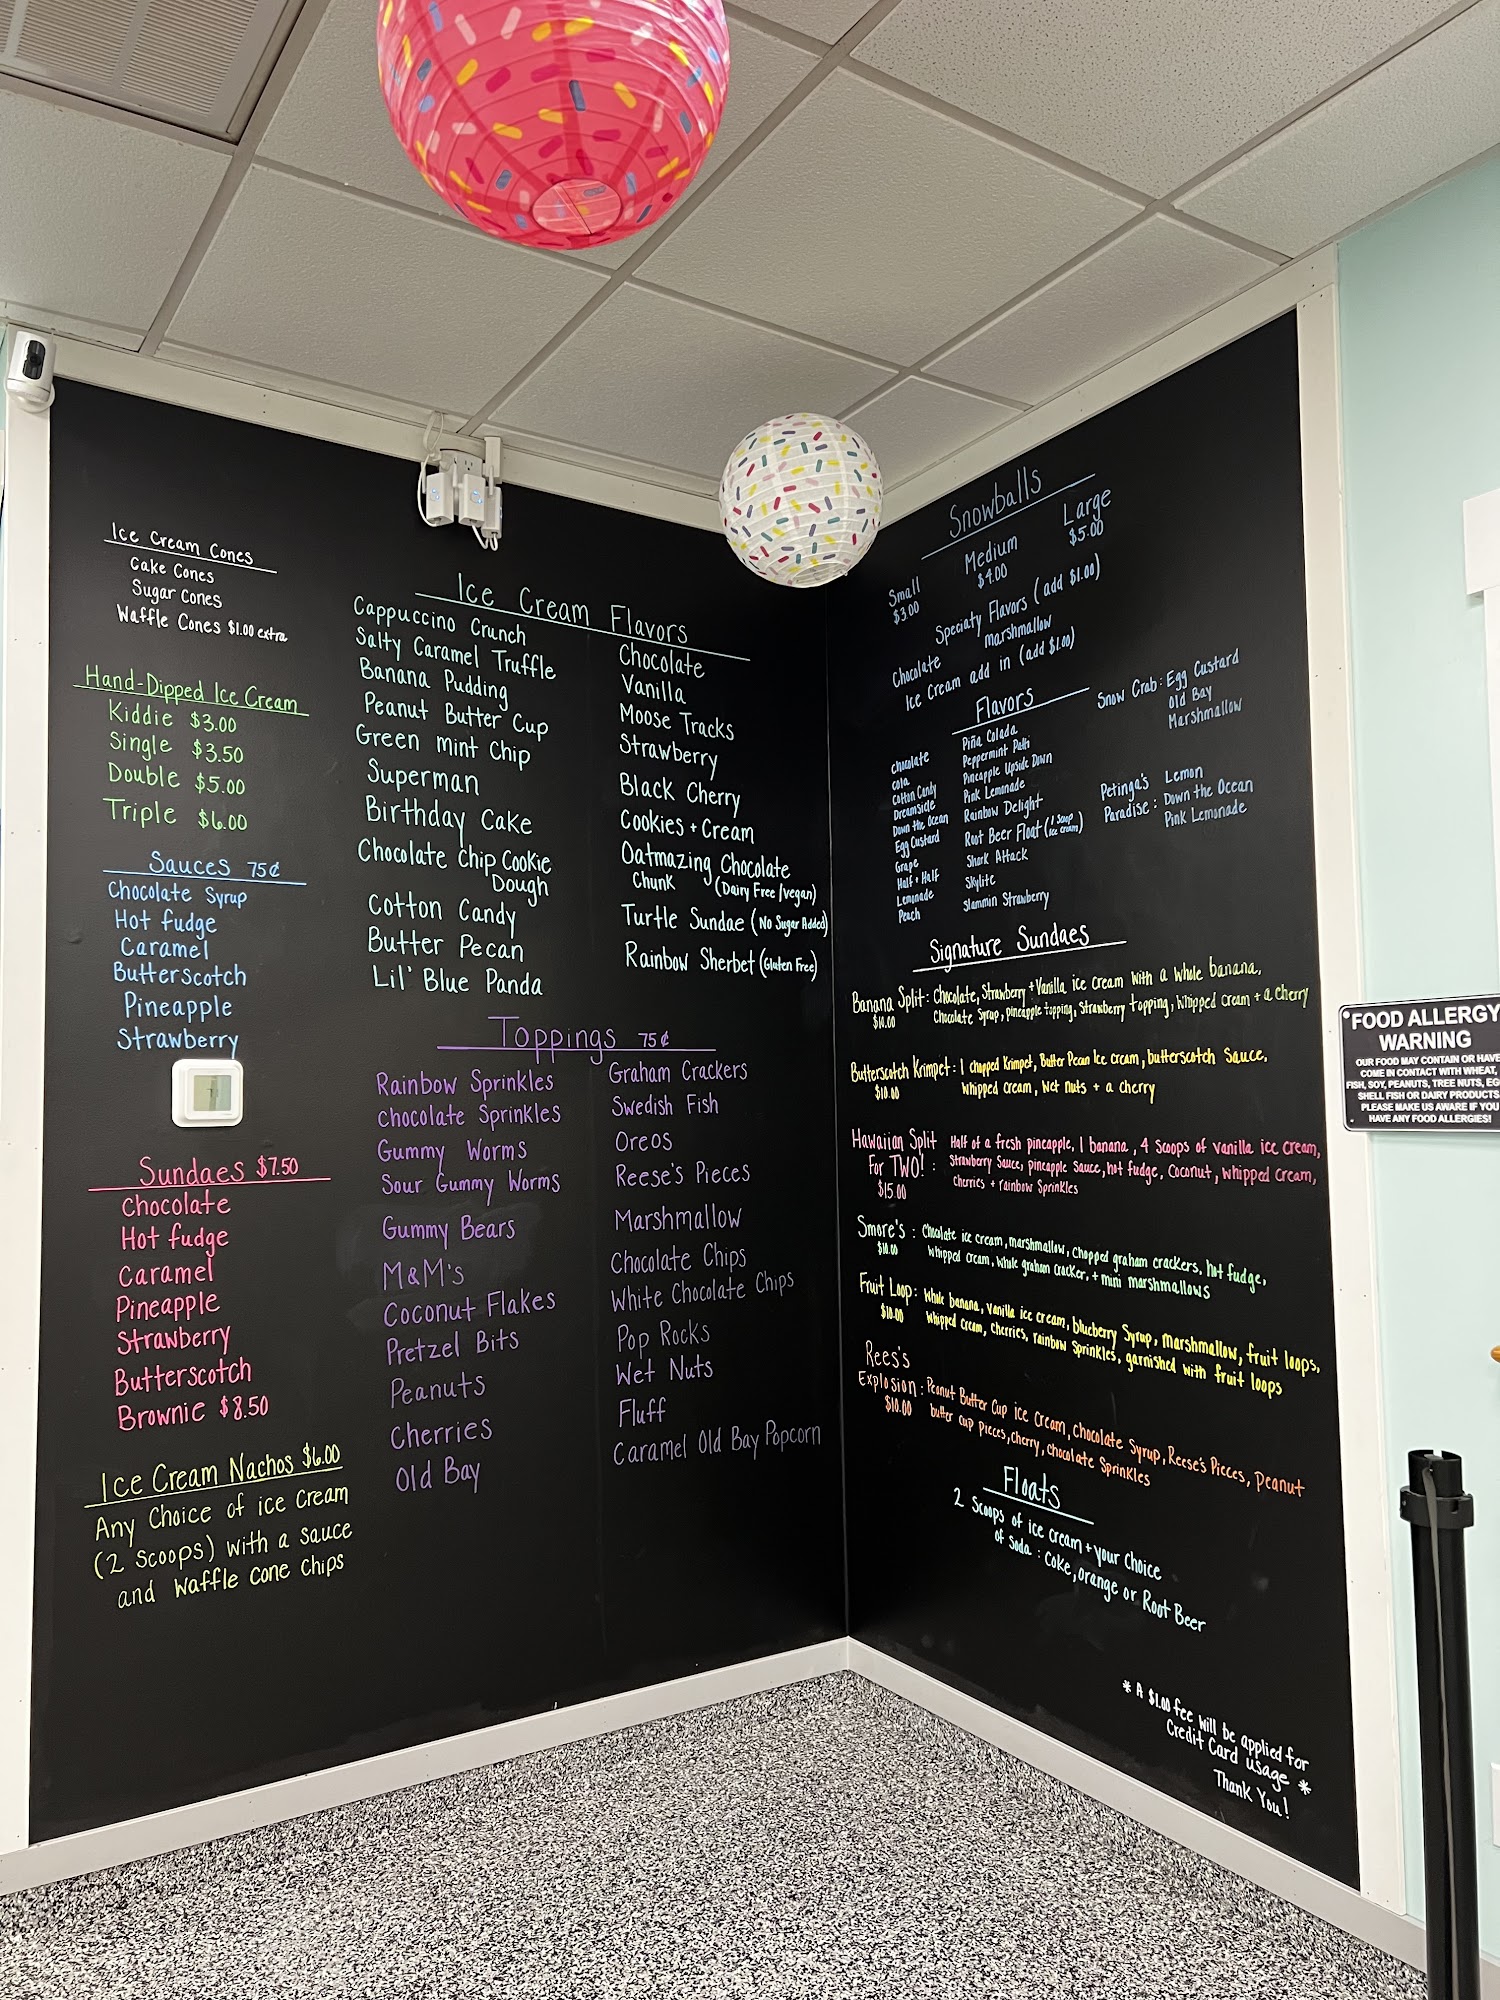 Ice Cream Cones
Cake Cones
Sugar Cones
Waffle Cones $1.00 extra
Hand-Dipped Ice Cream
Kiddie $3.00
Single $3.50
Double $5.00
Triple $6.00
Sauces 75¢
Chocolate Syrup
Hot fudge
Caramel
Butterscotch
Pineapple
Strawberry
Sundaes $7.50
Chocolate
Hot fudge
Caramel
Pineapple
Strawberry
Butterscotch
Brownie $8.50
Ice Cream Nachos $6.00
Any Choice of ice cream
(2 scoops) with a sauce
and waffle cone chips
Ice Cream Flavors
Cappuccino Crunch
Salty Caramel Truffle
Banana Pudding
Peanut Butter Cup
Green mint Chip
Superman
Birthday Cake
Chocolate Chip Cookie
Dough
Cotton Candy
Butter Pecan
Lil' Blue Panda
Chocolate
Vanilla
Moose Tracks
Strawberry
Black Cherry
Cookies + Cream
Oatmazing Chocolate
Chunk (Dairy Free/vegan)
Turtle Sundae (No Sugar Added)
Rainbow Sherbet (Gluten Free)
Toppings 75¢
Rainbow Sprinkles
Chocolate Sprinkles
Gummy Worms
Sour Gummy Worms
Gummy Bears
M&M's
Coconut Flakes
Pretzel Bits
Peanuts
Cherries
Old Bay
Graham Crackers
Swedish Fish
Oreos
Reese's Pieces
Marshmallow
Chocolate Chips
White Chocolate Chips
Pop Rocks
Wet Nuts
Fluff
Caramel Old Bay Popcorn
Snowballs
Small Medium Large
$3.00 $4.00 $5.00
Specialty Flavors (add $1.00)
Chocolate marshmallow
Ice Cream add in (add $1.00)
Flavors
Chocolate
Cola
Cotton Candy
Dreamsicle
Down the Ocean
Egg Custard
Grape
Half + Half
Lemonade
Peach
Piña Colada
Peppermint Patti
Pineapple Upside Down
Pink Lemonade
Rainbow Delight
Root Beer Float (1 scoop ice cream)
Shark Attack
Skylite
Slammin Strawberry
Snow Crab: Egg Custard
Old Bay
Marshmallow
Petinga's Lemon
Paradise: Down the Ocean
Pink Lemonade
Signature Sundaes
Banana Split: Chocolate, Strawberry + Vanilla ice cream with a whole banana,
$10.00 Chocolate Syrup, pineapple topping, Strawberry topping, whipped cream + a cherry
Butterscotch Krimpet: 1 chopped Krimpet, Butter Pecan Ice cream, butterscotch Sauce,
$10.00 whipped cream, wet nuts + a cherry
Hawaiian Split Half of a fresh pineapple, 1 banana, 4 scoops of vanilla ice cream,
For TWO!: Strawberry Sauce, pineapple sauce, hot fudge, Coconut, whipped cream,
$15.00 cherries + rainbow sprinkles
Smore's: Chocolate ice cream, marshmallow, chopped graham crackers, hot fudge,
$10.00 whipped cream, whole graham cracker, + mini marshmallows
Fruit Loop: whole banana, vanilla ice cream, blueberry Syrup, marshmallow, fruit loops,
$10.00 whipped cream, cherries, rainbow sprinkles, garnished with fruit loops
Rees's
Explosion: Peanut Butter Cup ice Cream, Chocolate Syrup, Reese's Pieces, Peanut
$10.00 butter cup pieces, cherry, chocolate Sprinkles
Floats
2 Scoops of ice cream + your choice
of soda: Coke, orange or Root Beer
* A $1.00 fee will be applied for
Credit Card usage *
Thank You!
*FOOD ALLERGY
WARNING
OUR FOOD MAY CONTAIN OR HAVE
COME IN CONTACT WITH WHEAT,
FISH, SOY, PEANUTS, TREE NUTS, EG
SHELL FISH OR DAIRY PRODUCTS
PLEASE MAKE US AWARE IF YOU
HAVE ANY FOOD ALLERGIES!